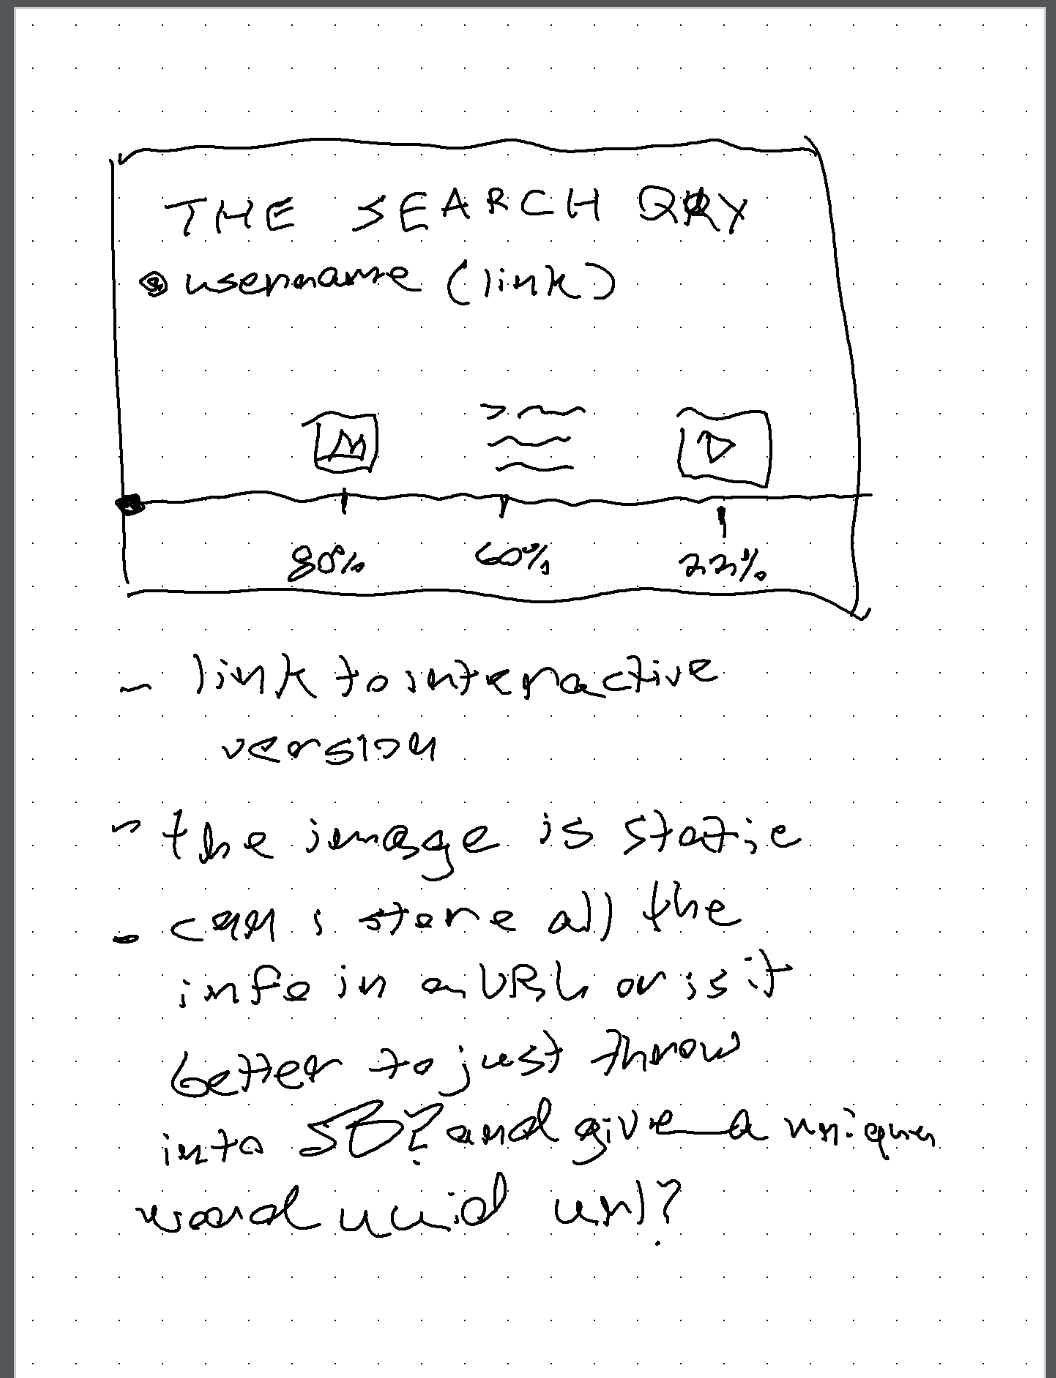 THE SEARCH QRY
username (link)
80% 60% 22%
- link to interactive
version
- the image is static
- can i store all the
info in a URL or is it
better to just throw
into and give a unique
word uuid url?